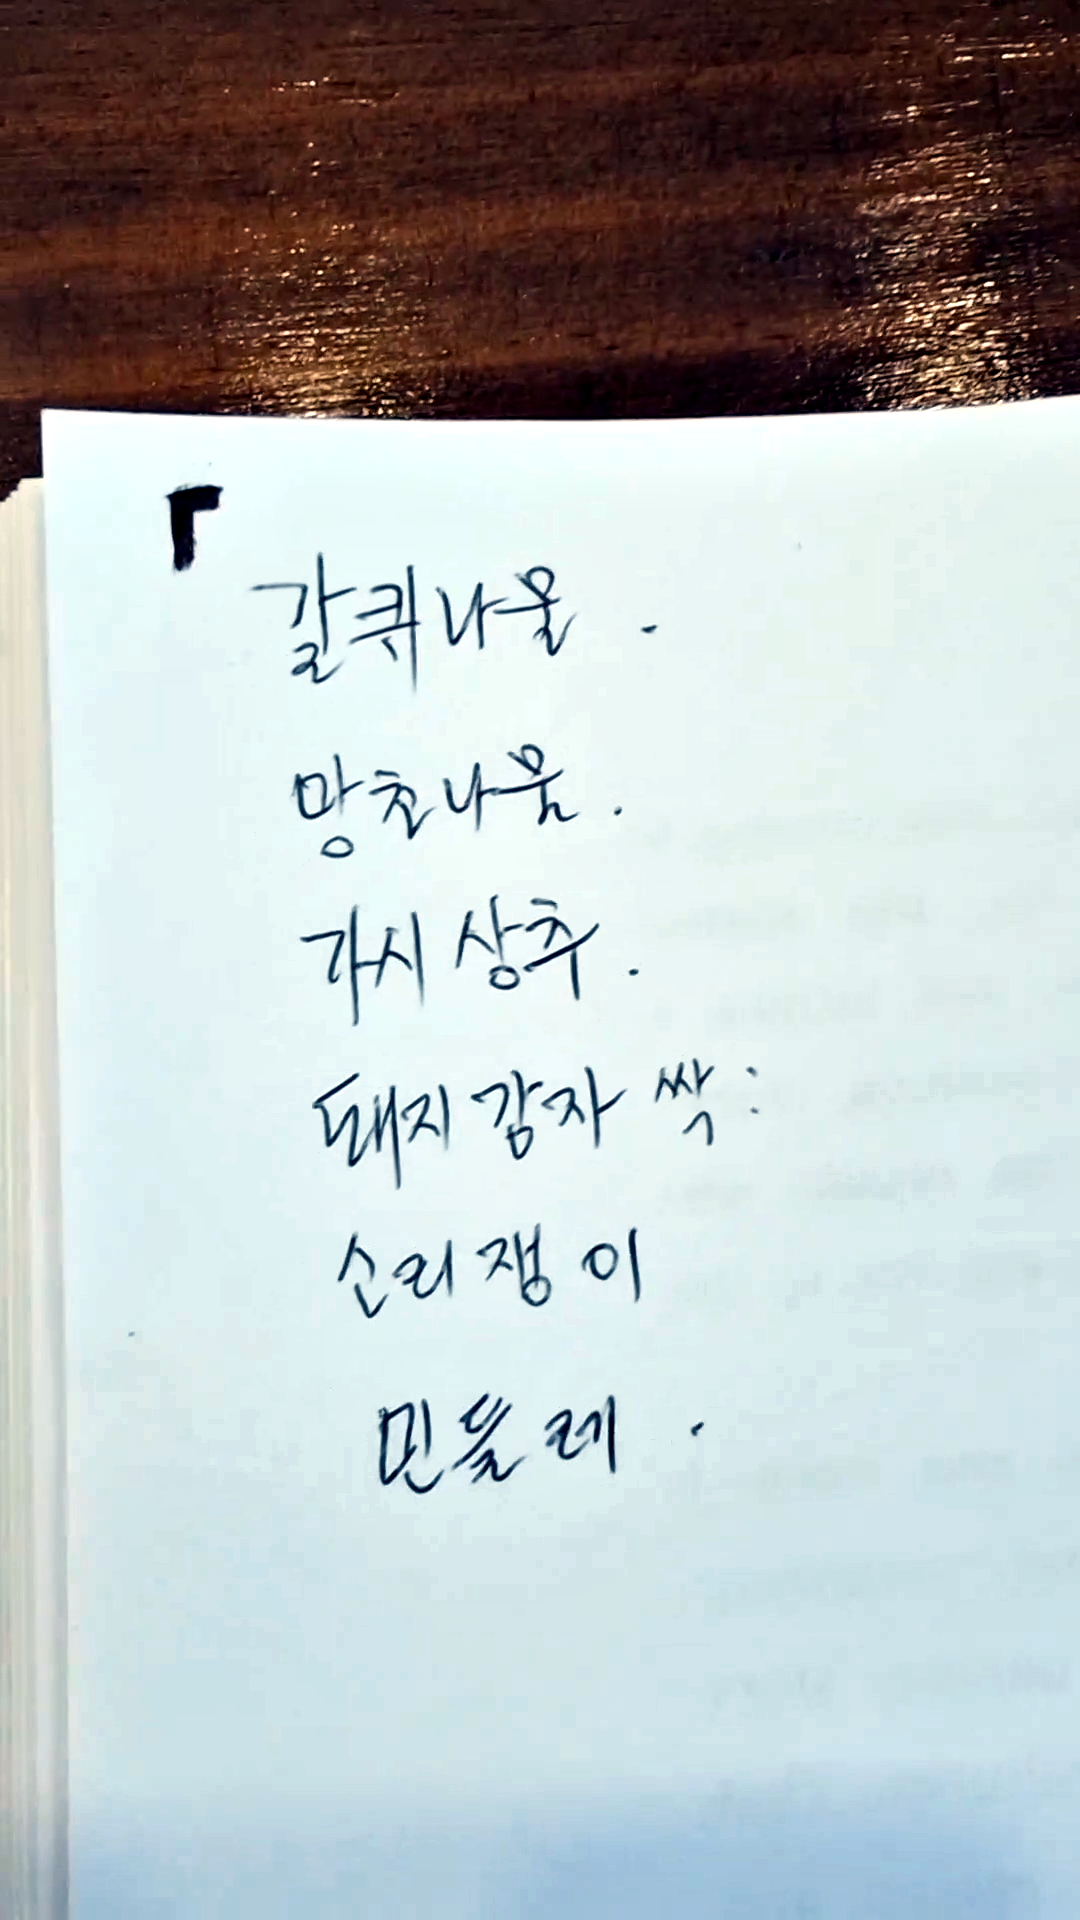 갈퀴나물.
망초나물.
가시 상추.
돼지감자 싹:
소리쟁이
민들레.